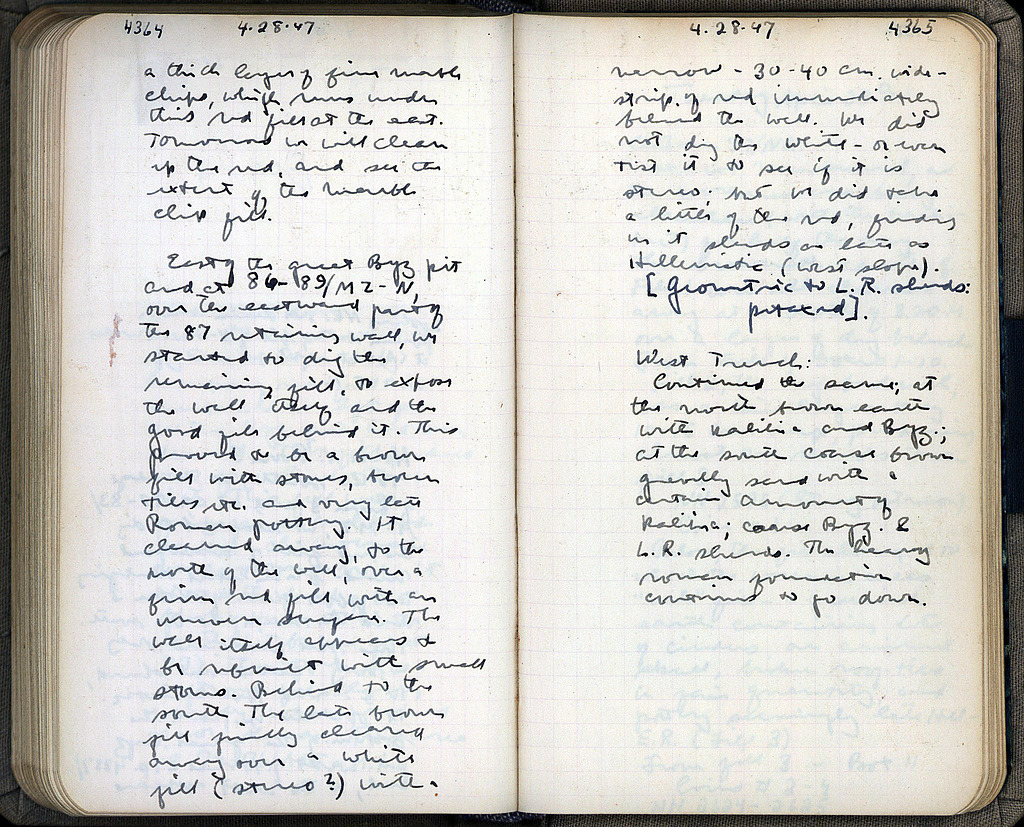 4364 4.28.47
a thick layer of firm marble
chips, which runs under
this red fill at the east.
Tomorrow we will clean
up the red, and see the
extent of the marble
chip fill.
East of the great Byz pit
and at 86-89/ΜΖ-Ν,
over the eastward part of
the 87 retaining wall, we
started to dig the
remaining fill, to expose
the wall itself and the
good fill behind it. This
proved to be a brown
fill with stones, broken
tiles etc. and very late
Roman pottery. It
cleared away, to the
north of the wall, over a
firm red fill with an
uneven surface. The
wall itself appears to
be rebuilt with small
stones. Behind to the
south the late brown
fill finally cleared
away over a white
fill (stereo?) with a
4.28.47 4365
narrow - 30-40 cm. wide -
strip of red immediately
behind the wall. We did
not dig the white - or even
test it to see if it is
stereo; but we did take
a little of the red, finding
in it sherds as late as
Hellenistic (west slope).
[Geometric to L.R. sherds:
potaxed].
West Trench:
Continued the same; at
the north brown earth
with kalitsa and Byz.;
at the south coarse brown
gravelly sand with a
certain amount of
kalitsa; coarse Byz. &
L.R. sherds. The heavy
roman foundation
continues to go down.